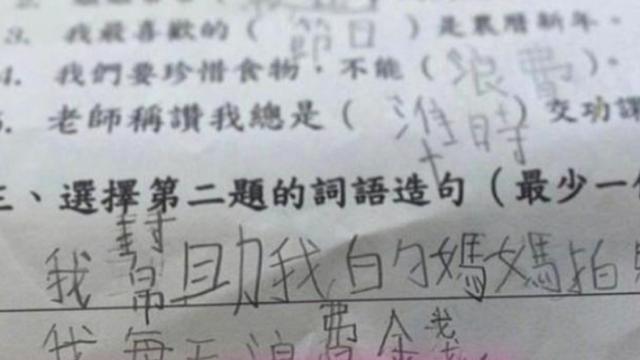 3. 我最喜歡的（節日）是農曆新年。
4. 我們要珍惜食物，不能（浪費）。
5. 老師稱讚我總是（準時）交功課
三、選擇第二題的詞語造句（最少一
我幫助我的媽媽拍
我每天浪費金錢